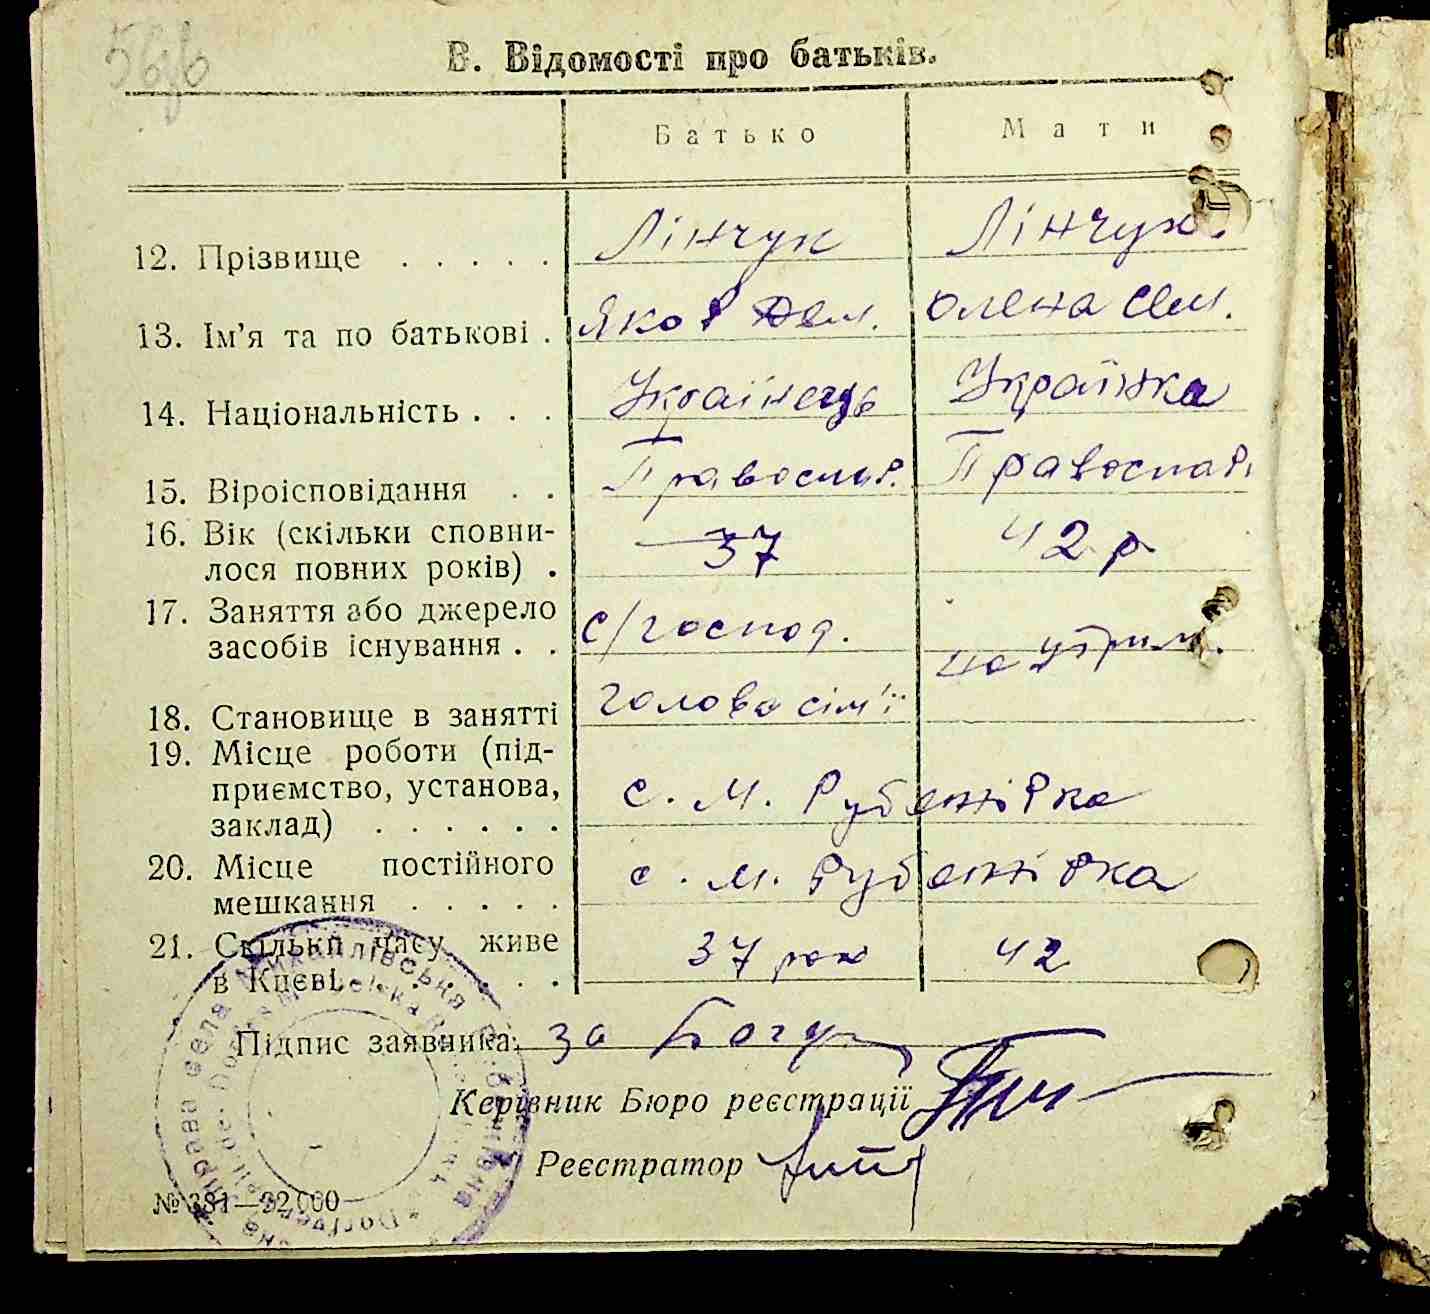 566
В. Відомості про батьків.
Батько Мати
12. Прізвище . . . . . Лінчук Лінчук.
13. Ім'я та по батькові . Яков Сем. Олена Сем.
14. Національність . . . Українець Українка
15. Віроісповідання . . Православ. Православ.
16. Вік (скільки сповни-
лося повних років) . 37 42 р
17. Заняття або джерело
засобів існування . . с/господ. на утрим.
18. Становище в занятті голова сім'ї
19. Місце роботи (під-
приємство, установа,
заклад) . . . . . . с. М. Рубежівка
20. Місце постійного
мешкання . . . . . с. М. Рубежівка
21. Скільки часу живе
в Києві . . . . . 37 рок 42
Підпис заявника: за
Керівник Бюро реєстрації
Реєстратор
№ 381—92000